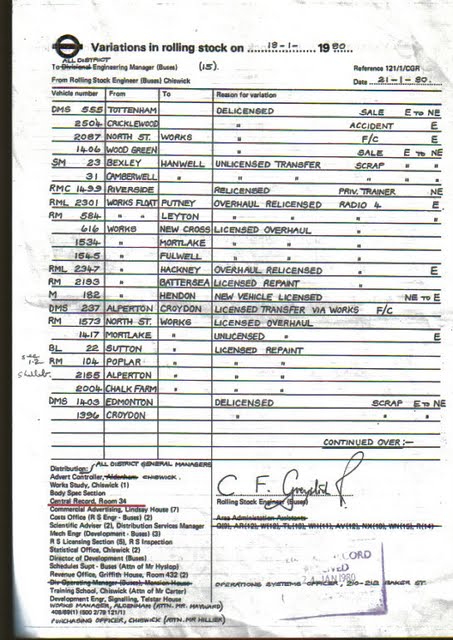 Variations in rolling stock on 18-1- 1980
ALL DISTRICT
To Divisional Engineering Manager (Buses) (15).
Reference 121/1/CGR
From Rolling Stock Engineer (Buses) Chiswick
Date 21-1-80.
Vehicle number From To Reason for variation
DMS 555 TOTTENHAM DELICENSED SALE E TO NE
2504 CRICKLEWOOD " ACCIDENT E
2087 NORTH ST. WORKS " F/C E
1406 WOOD GREEN " SALE E TO NE
SM 23 BEXLEY HANWELL UNLICENSED TRANSFER SCRAP " "
31 CAMBERWELL " " " " " "
RMC 1499 RIVERSIDE RELICENSED PRIV. TRAINER NE
RML 2301 WORKS FLOAT PUTNEY OVERHAUL RELICENSED RADIO 4 E
RM 584 " " LEYTON " " "
616 WORKS NEW CROSS LICENSED OVERHAUL "
1534 " MORTLAKE " " "
1545 " FULWELL " "
RML 2347 " HACKNEY OVERHAUL RELICENSED E
RM 2193 " BATTERSEA LICENSED REPAINT "
M 182 " HENDON NEW VEHICLE LICENSED NE TO E
DMS 237 ALPERTON CROYDON LICENSED TRANSFER VIA WORKS F/C
RM 1573 NORTH ST. WORKS LICENSED OVERHAUL
1417 MORTLAKE " UNLICENSED " E
BL 22 SUTTON " LICENSED REPAINT
RM 104 POPLAR " " "
2155 ALPERTON " " "
2004 CHALK FARM " " "
DMS 1403 EDMONTON DELICENSED SCRAP E TO NE
1396 CROYDON " " " "
CONTINUED OVER:-
Distribution: ALL DISTRICT GENERAL MANAGERS
Advert Controller, Aldenham CHISWICK.
Works Study, Chiswick (1)
Body Spec Section
Central Record, Room 34
Commercial Advertising, Lindsay House (7)
Costs Office (R S Engr - Buses) (2)
Scientific Adviser (2), Distribution Services Manager
Mech Engr (Development) (3)
R S Licensing Section (5), R S Inspection
Statistical Office, Chiswick (2)
Director of Development (Buses)
Schedules Supt - Buses (Attn of Mr Hyslop)
Revenue Office, Griffith House, Room 432 (2)
Div Operating Manager (Buses), Mansion House
Training School, Chiswick (Attn of Mr Carter)
Development Engr, Signalling, Telstar House
WORKS MANAGER, ALDENHAM (ATTN. MR. HAYWARD)
PURCHASING OFFICER, CHISWICK (ATTN. MR HILLIER)
Rolling Stock Engineer (Buses)
Area Administration Assistants
OPERATIONS SYSTEMS OFFICER, 210-212 BAKER ST.
RECORD
JAN 1980